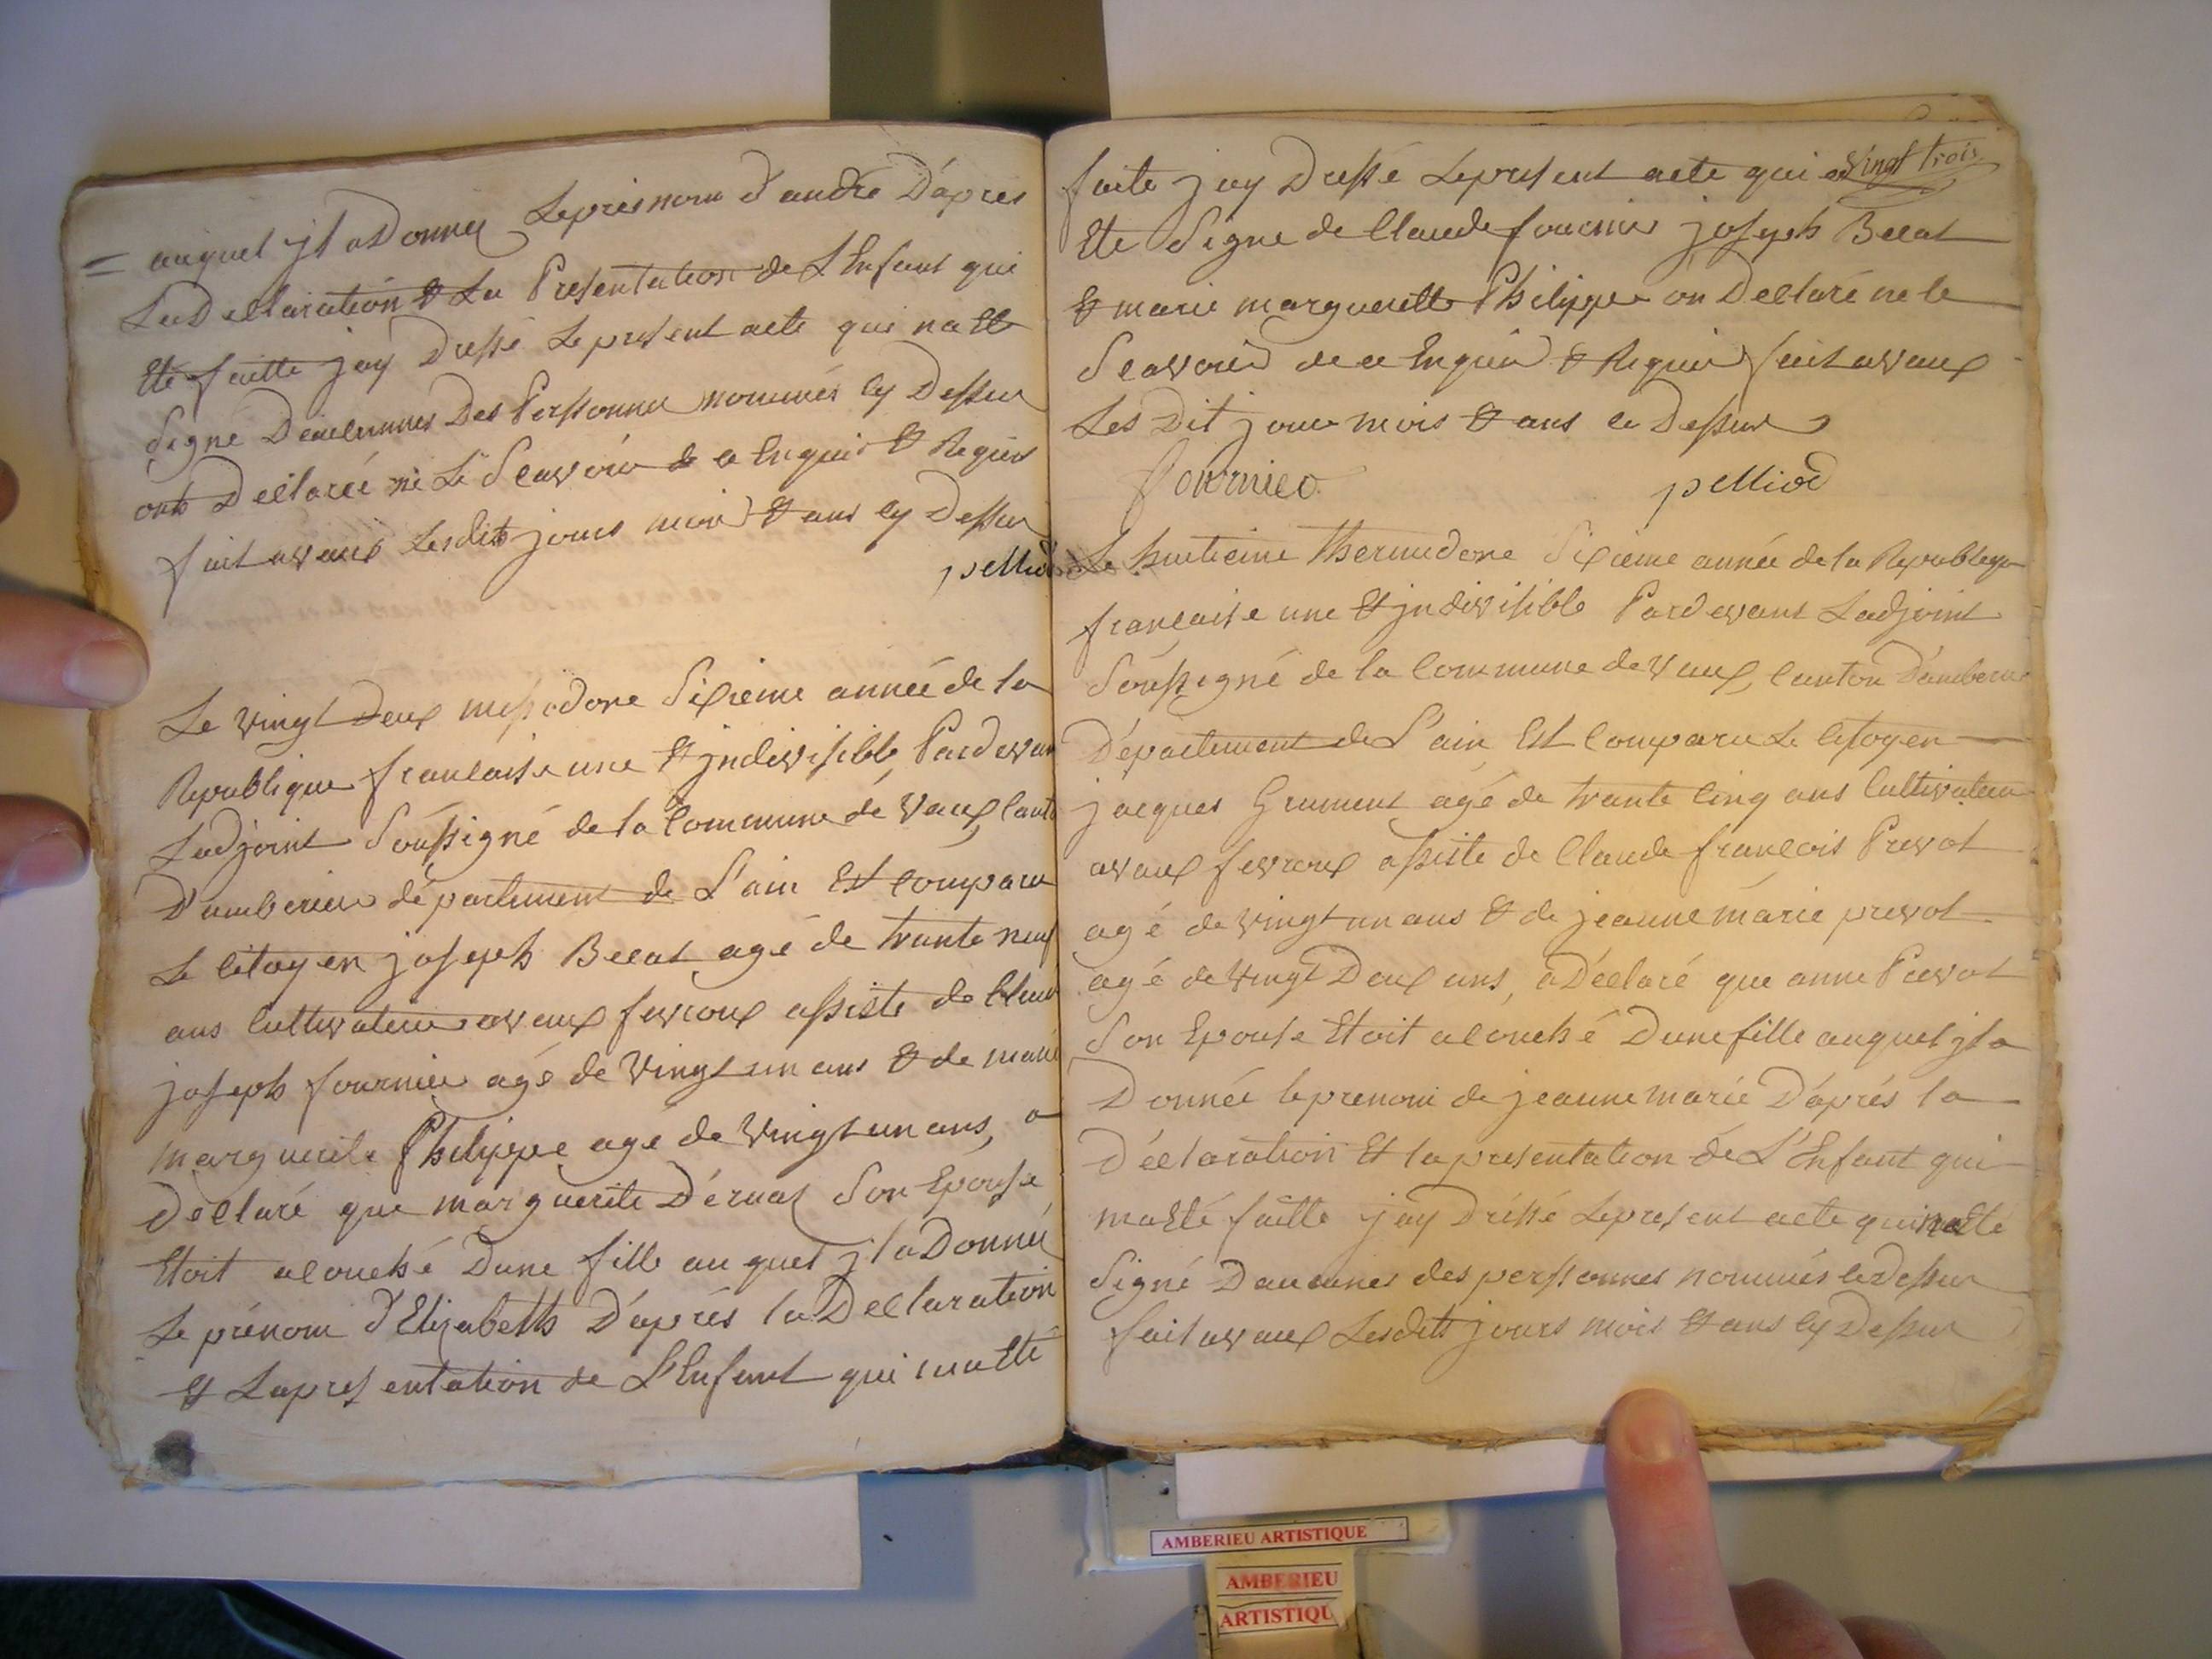 = auquel jl a Donner Le presnom d'andré D'apres
La Declaration & La Presentation de L'Enfant qui
Eté faitte jay Dressé Le present acte qui na Eté
Signé Daucunnes Des Perssonnes nommés cy Dessus
onts Declarée ne Le Scavoire de ce Enquis & Requis
fait avaux Lesdits jours mois & ans cy Dessus
pelliod
Le vingt Deux messidore Sixieme année de la
Republique francaise une & jndivisible, Pardevan
Ladjoint Soussigné de la Commune de Vaux, Canto
D'amberieux département de L'ain Est Comparu
Le Citoyen joseph Becat agé de trante neuf
ans Cultivateur avaux fevroux assisté de Claud
joseph fournier agé de Vingt un ans & de marie
marguerite Philippe agé de Vingt un ans, a
Déclaré que marguerite Deruat Son Epouse
Etoit acouché Dune fille auquel jl a Donné
Le prénom d'Elizabeth D'aprés la Declaration
& La presentation de L'Enfant qui ma Eté
faite jay Dressé Le present acte qui a
Vingt trois
Eté Signé de Claude fournier joseph Becat
& marie margueritte Philippe on Declaré ne le
Scavoir de ce Enquis & Requis fait avaux
Les Dit jour mois & ans ce Dessus
fournier pelliod
Le huitieme thermidore Sixieme année de la Republique
francaise une & jndivisible Pardevant Ladjoint
Soussigné de la Commune de Vaux, Canton D'amberieu
Département de L'ain Est Comparu Le Citoyen
jacques Grument agé de trante cinq ans Cultivateur
avaux fevroux assisté de Claude francois Prevot
agé de vingt un ans & de jeanne marie prevot
agé de Vingt Deux ans, a Déclaré que anne Prevot
Son Epouse Etoit acouché Dune fille auquel jl a
Donnée le prenom de jeanne marie D'aprés la
Déclaration Et la presentation de L'Enfant qui
ma Eté faitte jay Dréssé Le present acte qui na Eté
Signé Daucunnes des perssonnes nommés ce Dessus
fait avaux Lesdits jours mois & ans cy Dessus
AMBERIEU ARTISTIQUE
AMBERIEU
ARTISTIQU